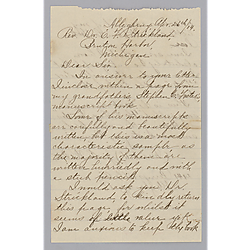 Rev. Dr. E. H. Strickland
Benton Harbor
Michigan
Dear Sir
In answer to your letter
I enclose within a page from
my grandfather, Stephen C. Foster's
manuscript book
Some of his manuscripts
are carefully and beautifully
written, but this is a most
characteristic sample as
the majority of them are
written hurriedly and with
a stub pencil.
I would ask you, Dr.
Strickland, to kindly return
this page, for while it
seems of little value yet
I am anxious to keep the book